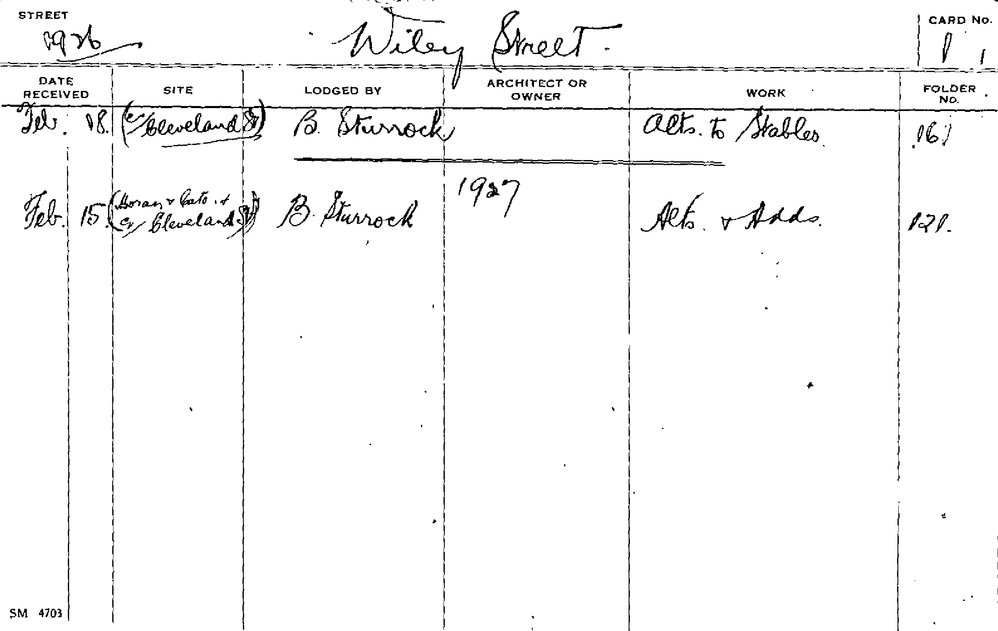 STREET
1926 Wiley Street.
CARD No.
1
DATE RECEIVED SITE LODGED BY ARCHITECT OR OWNER WORK FOLDER No.
Feb. 18. (cr/ Cleveland St) B. Sturrock Alts. to Stables. 161
1927
Feb. 15. (Horan & Cato. &
cr/ Cleveland St) B. Sturrock Alts. & Adds. 121.
SM 4703